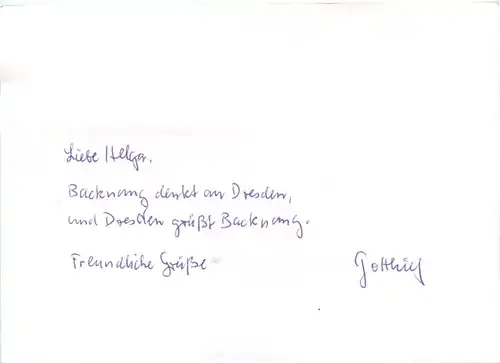 Liebe Helga,
Backnang denkt an Dresden,
und Dresden grüßt Backnang.
Freundliche Grüße Gotthilf